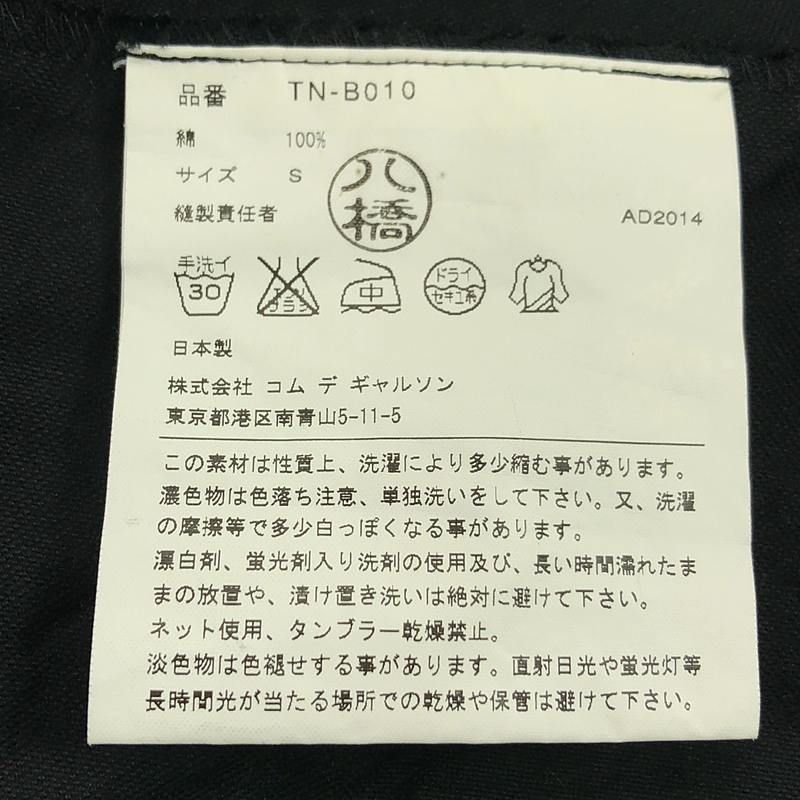 品番 TN-B010
綿 100%
サイズ S
縫製責任者
八橋
AD2014
手洗イ
30
エンソ
サラシ
中
ドライ
セキユ系
日本製
株式会社 コム デ ギャルソン
東京都港区南青山5-11-5
この素材は性質上、洗濯により多少縮む事があります。
濃色物は色落ち注意、単独洗いをして下さい。又、洗濯
の摩擦等で多少白っぽくなる事があります。
漂白剤、蛍光剤入り洗剤の使用及び、長い時間濡れたま
まの放置や、漬け置き洗いは絶対に避けて下さい。
ネット使用、タンブラー乾燥禁止。
淡色物は色褪せする事があります。直射日光や蛍光灯等
長時間光が当たる場所での乾燥や保管は避けて下さい。